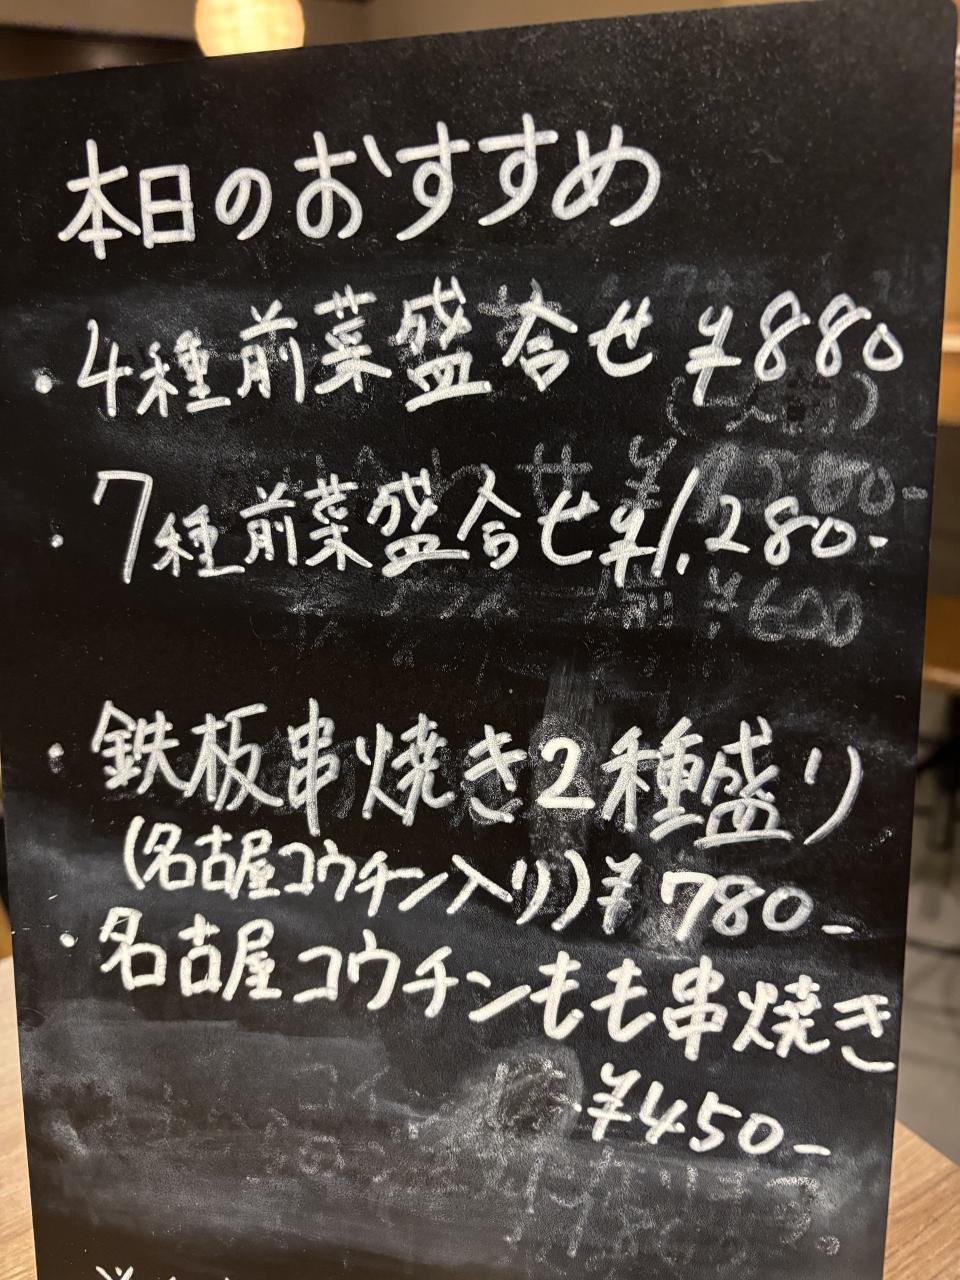 本日のおすすめ
・4種前菜盛合せ ¥880
・7種前菜盛合せ ¥1,280-
・鉄板串焼き2種盛り
(名古屋コウチン入り) ¥780-
・名古屋コウチンもも串焼き
¥450-